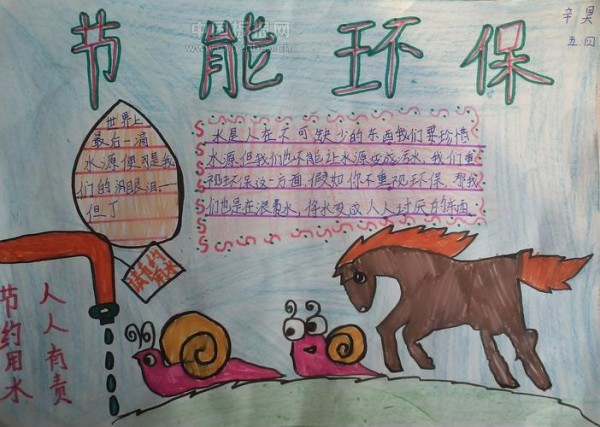 节能环保
辛昊
五四
世界上
最后一滴
水源便可是我
们的汨眼泪
但丁
水是人在不可缺少的东西我们要珍惜
水源.但我们也不能让水源变成污水,我们重
视环保这一方面,假如你不重视环保,那我
们也是在浪费水,将水变成人人讨厌的东西
节约用水
人人有责